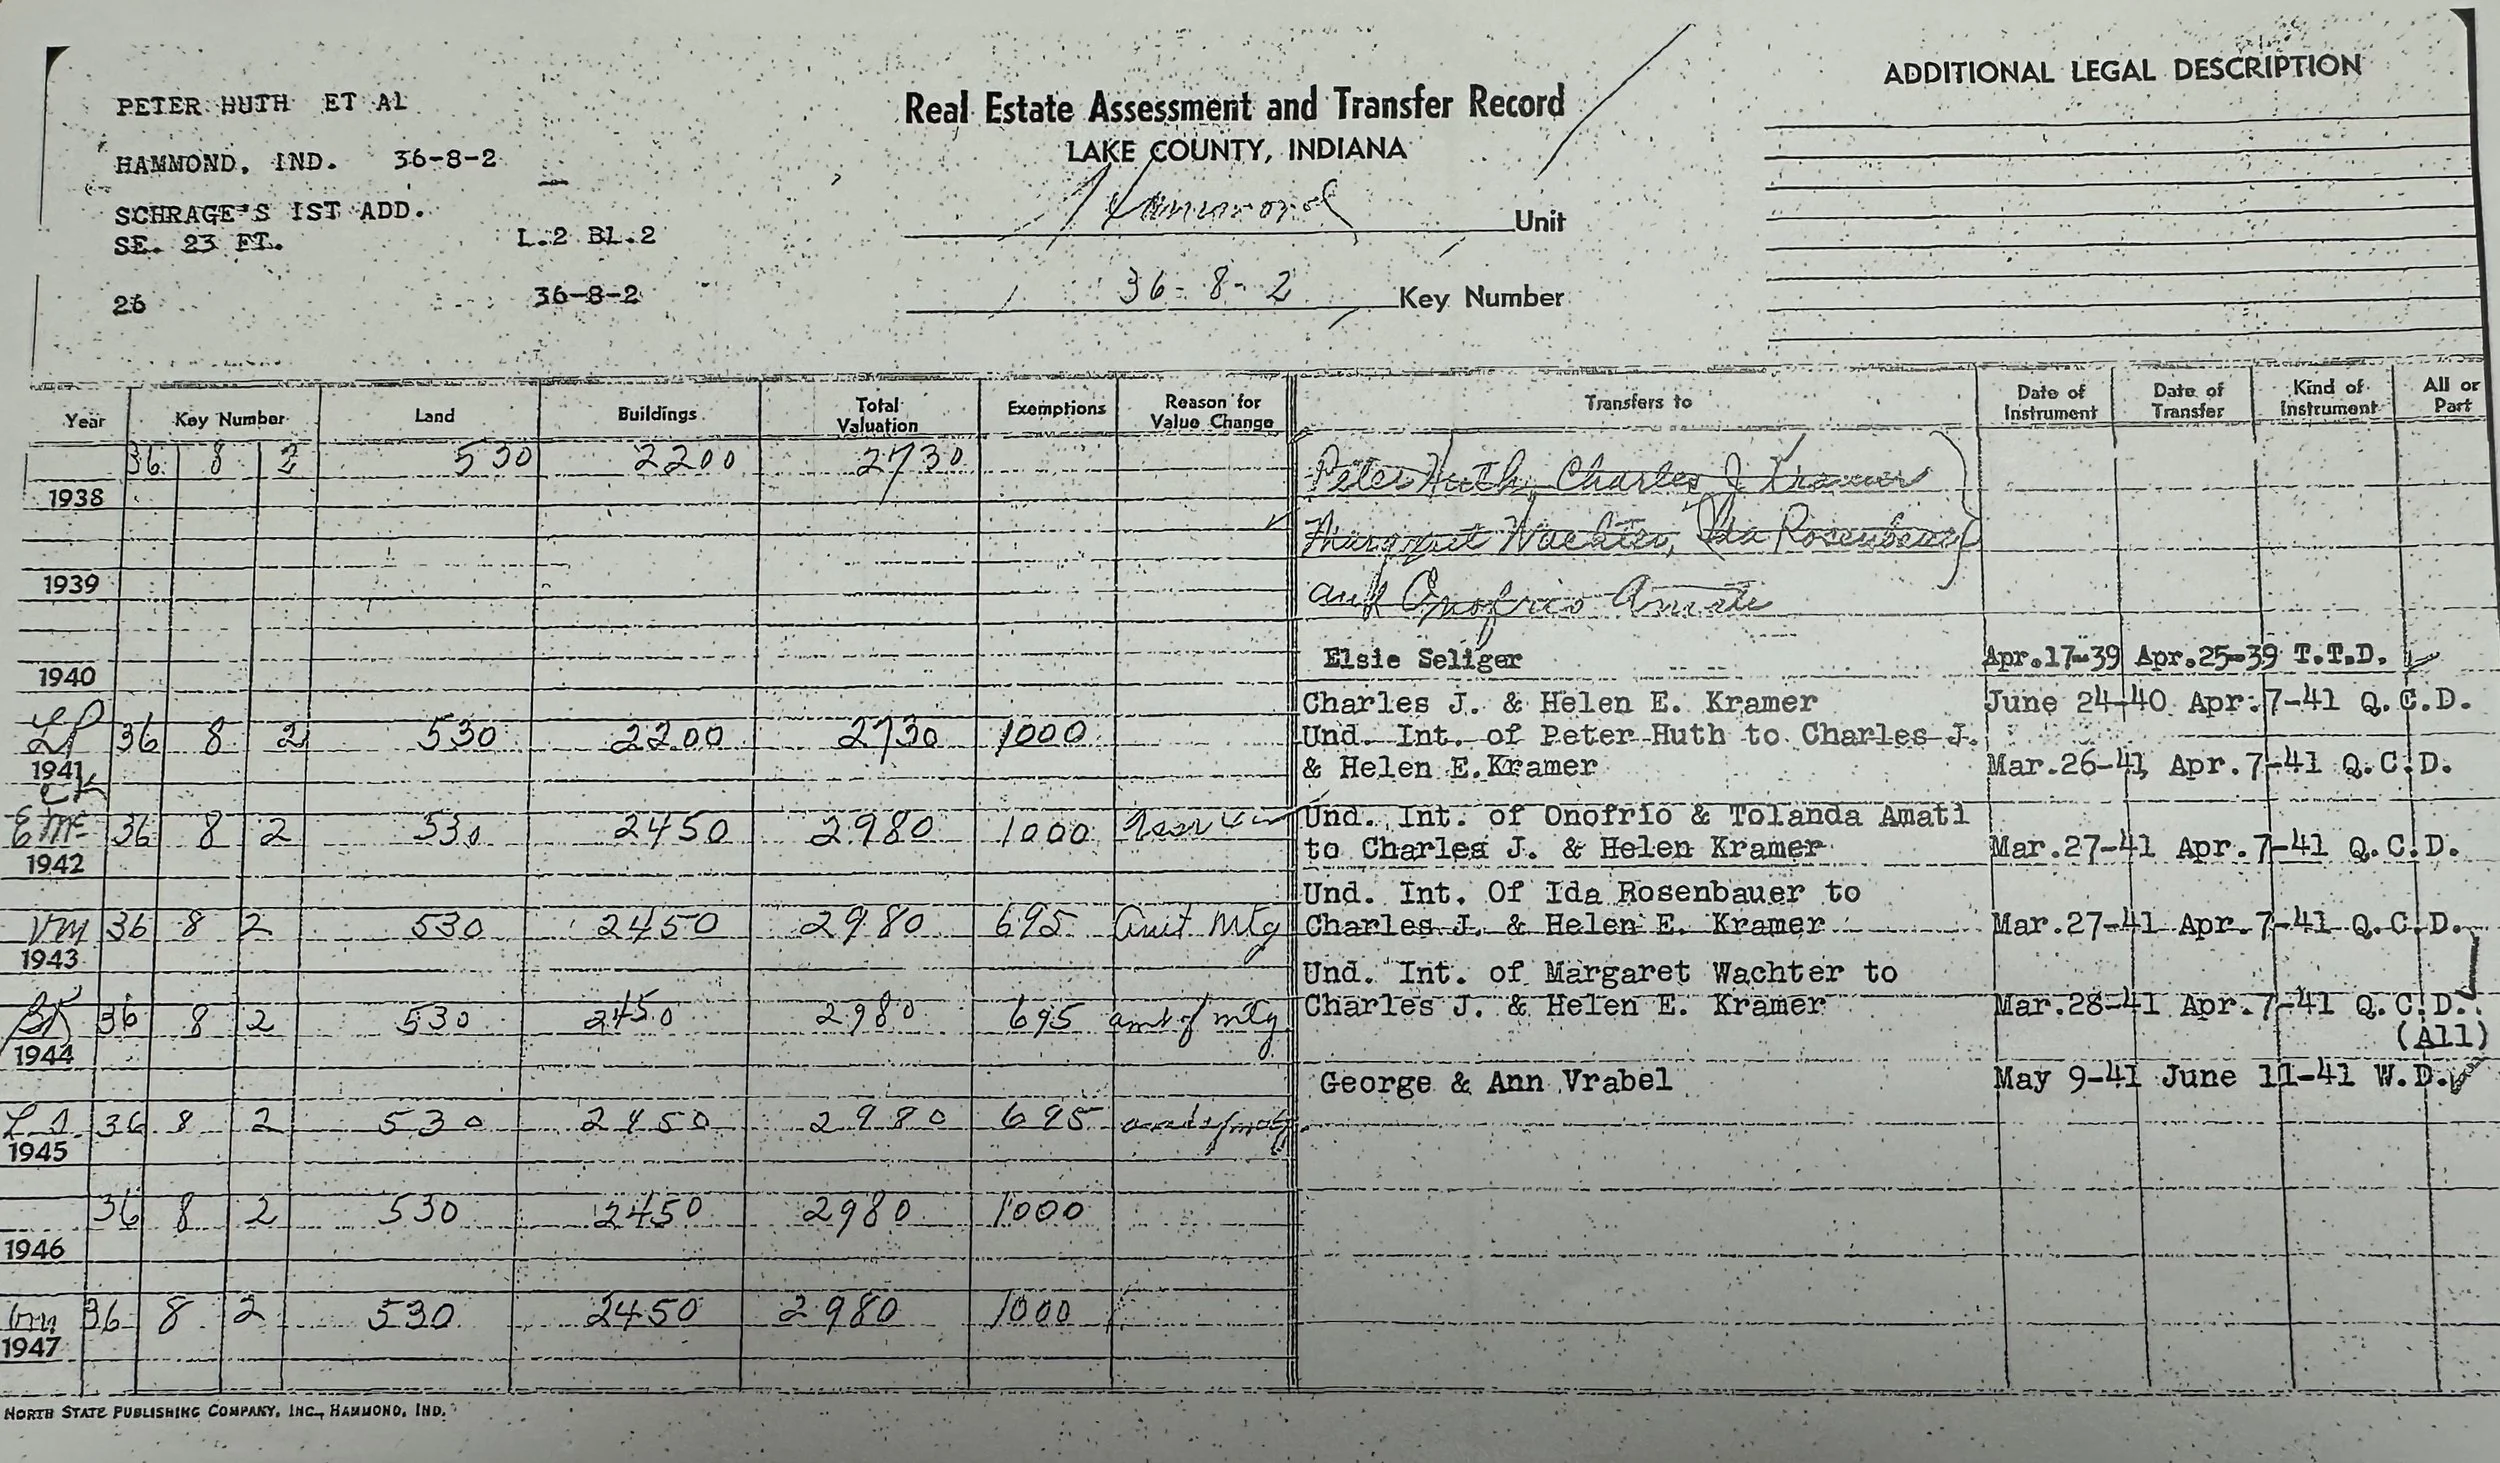 PETER HUTH ET Al
HAMMOND, IND. 36-8-2
SCHRAGE'S IST ADD.
SE. 23 FT. L.2 BL.2
26 36-8-2
Real Estate Assessment and Transfer Record
LAKE COUNTY, INDIANA
Hammond Unit
36-8-2 Key Number
ADDITIONAL LEGAL DESCRIPTION
Year Key Number Land Buildings Total Valuation Exemptions Reason for Value Change Transfers to Date of Instrument Date of Transfer Kind of Instrument All or Part
36 8 2 530 2200 2730
1938
1939
1940
36 8 2 530 2200 2730 1000
1941
36 8 2 530 2450 2980 1000
1942
VM 36 8 2 530 2450 2980 695 Amt Mtg
1943
36 8 2 530 2450 2980 695 amt of mtg
1944
36 8 2 530 2450 2980 695 amt of mtg
1945
36 8 2 530 2450 2980 1000
1946
36 8 2 530 2450 2980 1000
1947
Peter Huth, Charles J Kramer
Margaret Wachter, Ida Rosenbauer
and Onofrio Amati
Elsie Seliger Apr.17-39 Apr.25-39 T.T.D.
Charles J. & Helen E. Kramer June 24-40 Apr.7-41 Q.C.D.
Und. Int. of Peter Huth to Charles J.
& Helen E.Kramer Mar.26-41 Apr.7-41 Q.C.D.
Und. Int. of Onofrio & Tolanda Amati
to Charles J. & Helen Kramer Mar.27-41 Apr.7-41 Q.C.D.
Und. Int. Of Ida Rosenbauer to
Charles J. & Helen E. Kramer Mar.27-41 Apr.7-41 Q.C.D.
Und. Int. of Margaret Wachter to
Charles J. & Helen E. Kramer Mar.28-41 Apr.7-41 Q.C.D.
(All)
George & Ann Vrabel May 9-41 June 11-41 W.D.
NORTH STATE PUBLISHING COMPANY, INC., HAMMOND, IND.